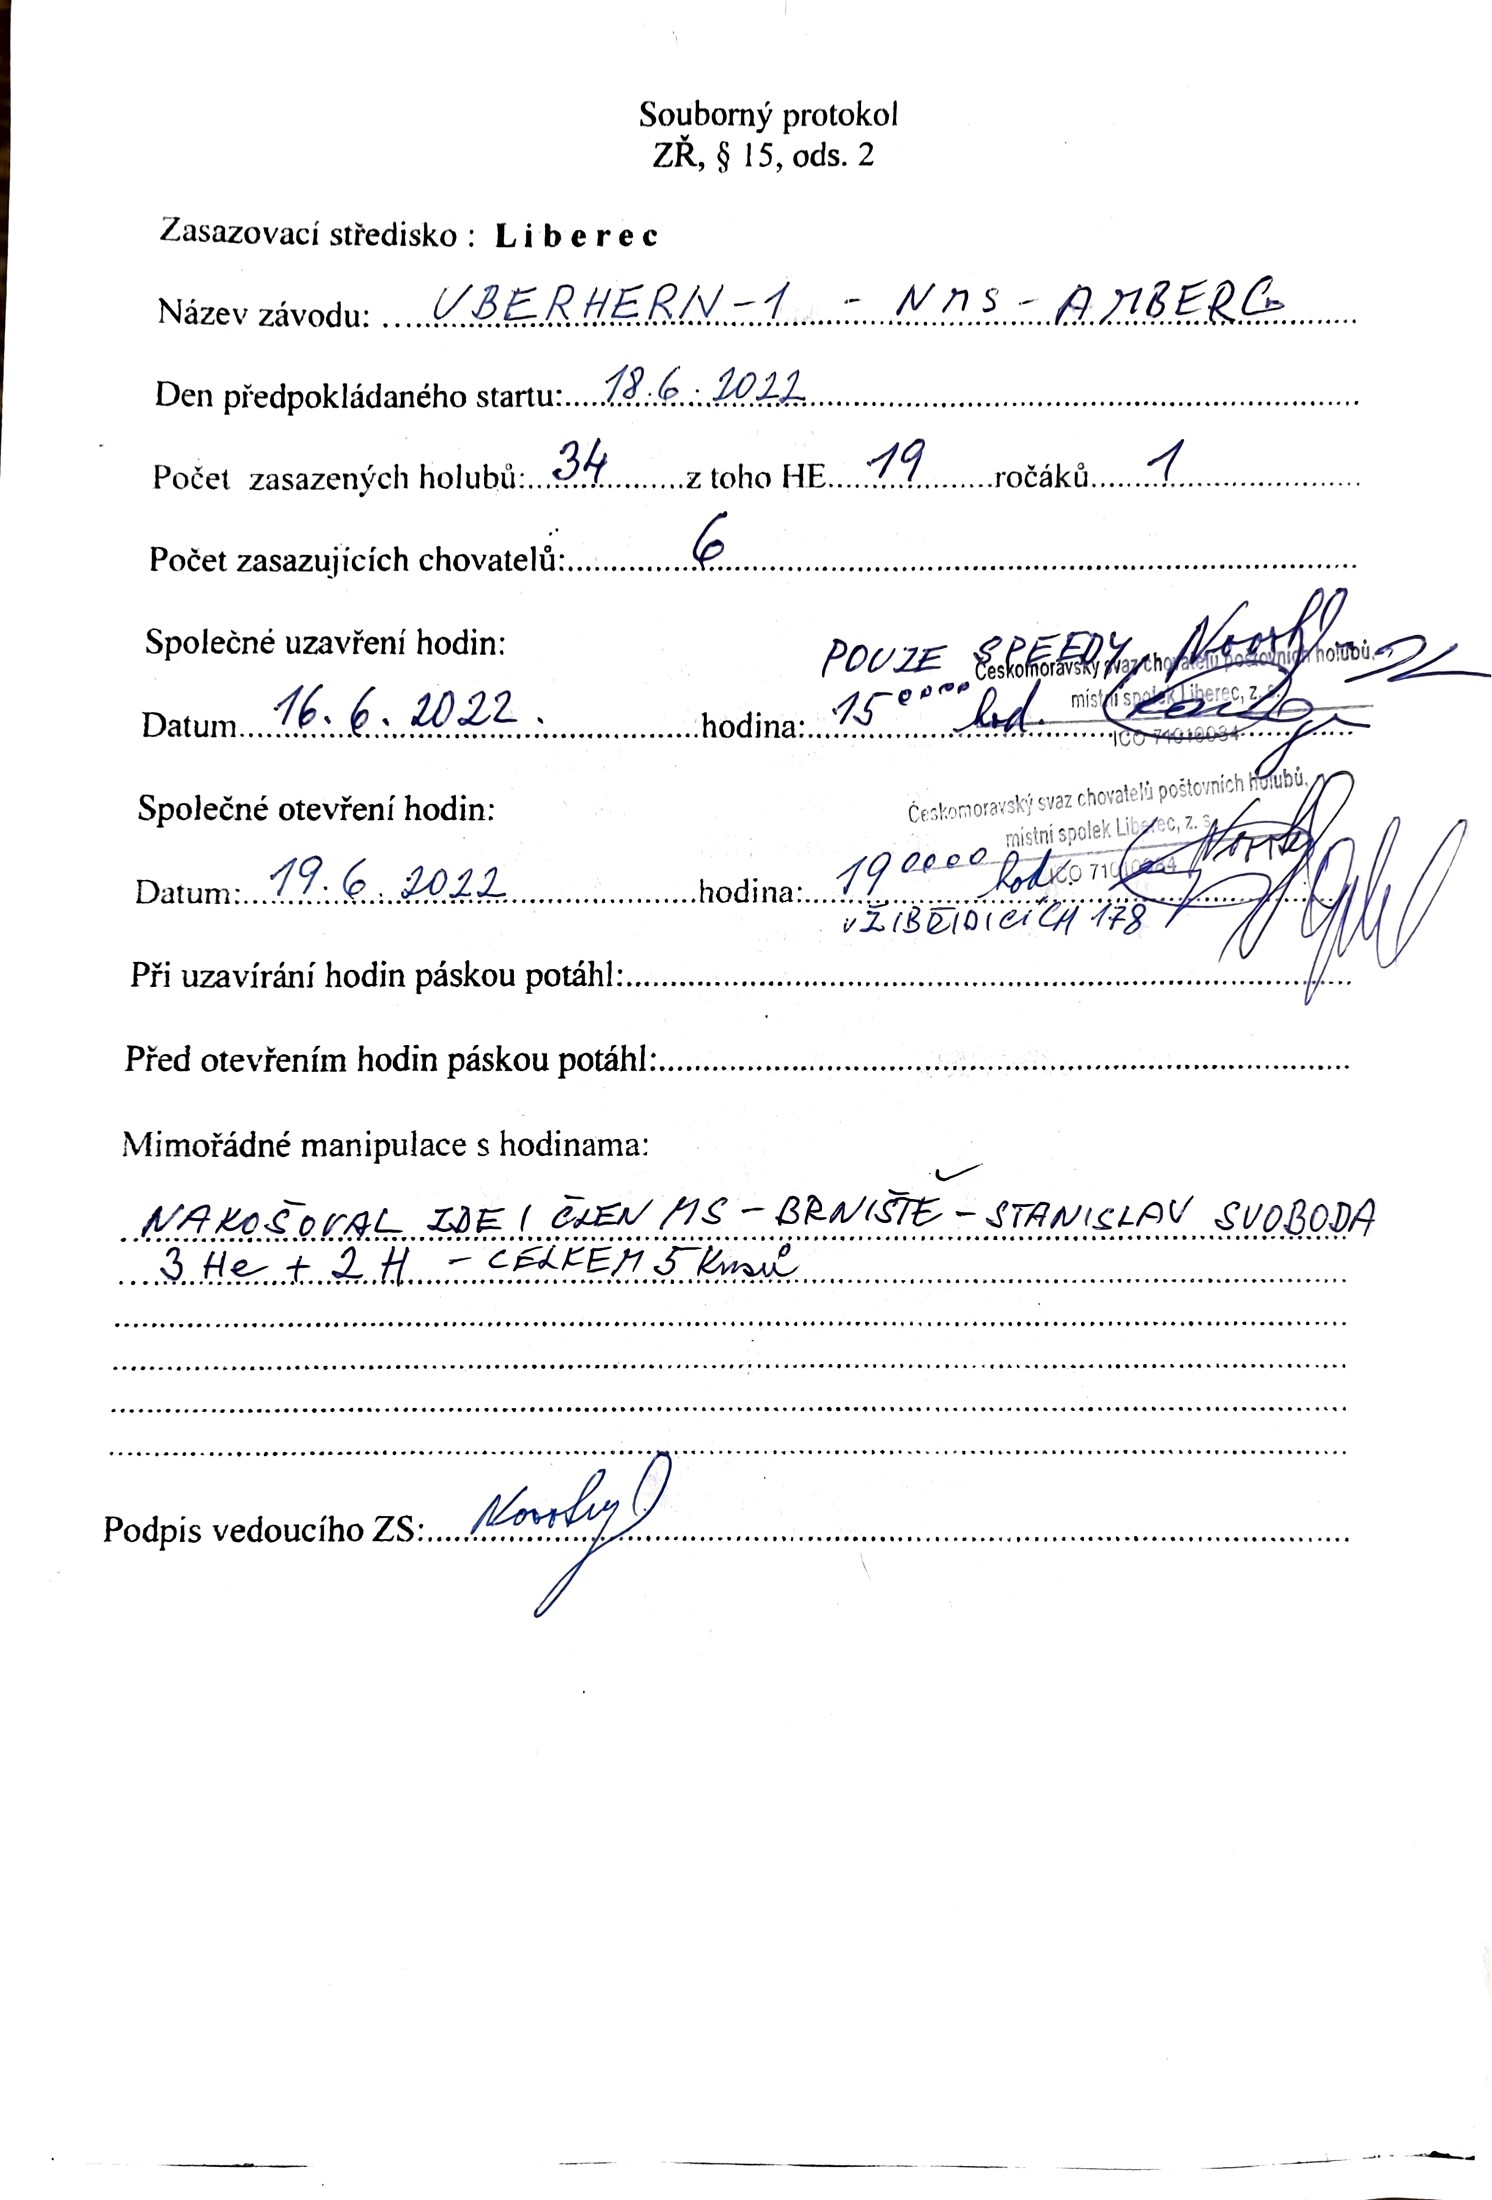 Souborný protokol
ZŘ, § 15, ods. 2
Zasazovací středisko : Liberec
Název závodu: UBERHERN-1 - NMS - AMBERG
Den předpokládaného startu: 18.6.2022
Počet zasazených holubů: 34 z toho HE 19 ročáků 1
Počet zasazujících chovatelů: 6
Společné uzavření hodin: POUZE SPEEDY
Českomoravský svaz chovatelů poštovních holubů,
místní spolek Liberec, z. s.
Datum 16.6.2022. hodina: 15 0000 hod.
IČO 71010034
Společné otevření hodin:
Českomoravský svaz chovatelů poštovních holubů,
místní spolek Liberec, z. s.
Datum: 19.6.2022 hodina: 19 0000 hod. IČO 71010034
V ŽIBŘIDICÍCH 178
Při uzavírání hodin páskou potáhl:
Před otevřením hodin páskou potáhl:
Mimořádné manipulace s hodinama:
NAKOŠOVAL ZDE I ČLEN MS - BRNIŠTĚ - STANISLAV SVOBODA
3 He + 2 H - CELKEM 5 Kusů
Podpis vedoucího ZS: Novotný